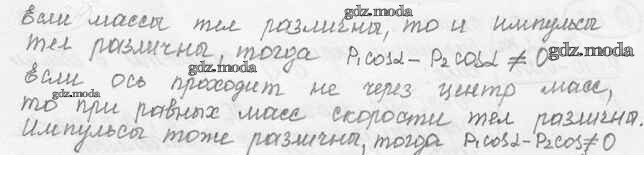 gdz.moda
Если массы тел различны, то и импульсы
тел различны, тогда P₁cosα - P₂cosα ≠ 0
gdz.moda
gdz.moda
Если ось проходит не через центр масс,
gdz.moda
то при равных масс скорости тел различны.
Импульсы тоже различны, тогда P₁cosα - P₂cos ≠ 0